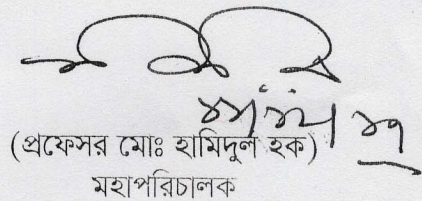 (প্রফেসর মোঃ হামিদুল হক)
মহাপরিচালক